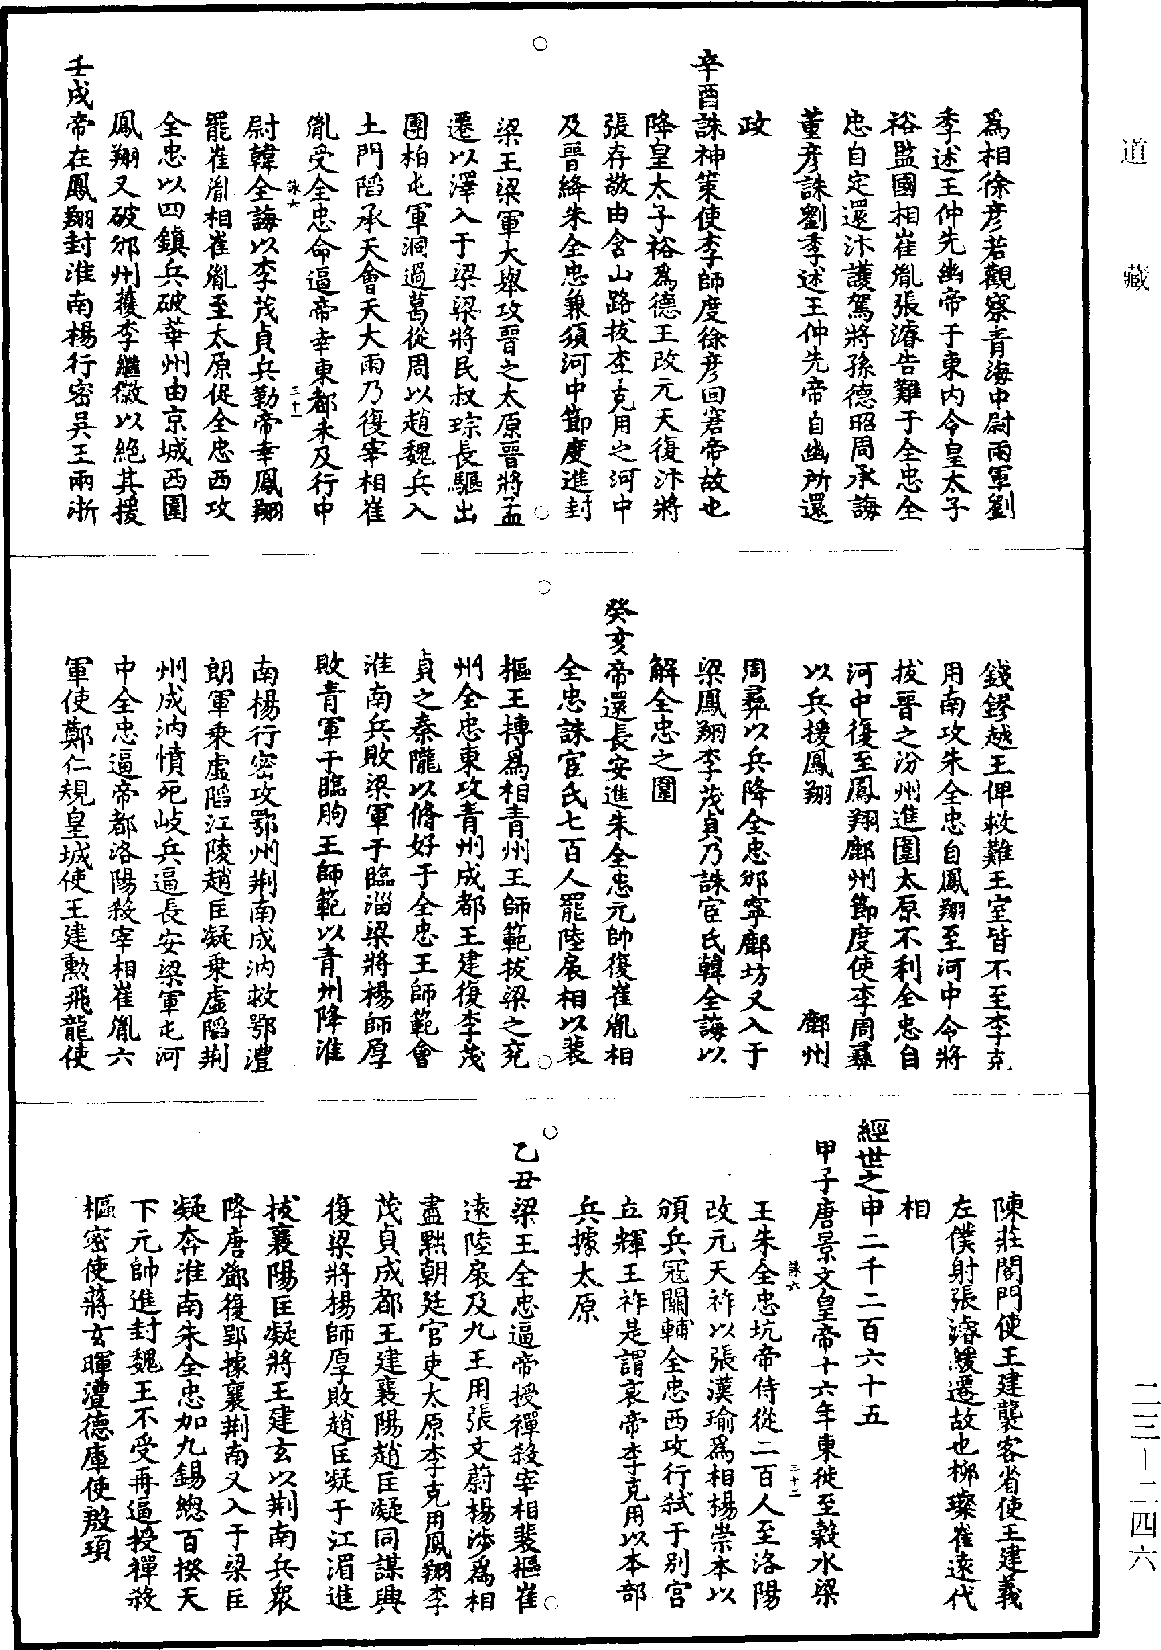 道藏
爲相徐彥若觀察青海中尉兩軍劉
季述王仲先幽帝于東內令皇太子
裕監國相崔胤張濬告難于全忠全
忠自定還汴護駕將孫德昭周承誨
董彥誅劉季述王仲先帝自幽所還
政
辛酉誅神策使李師度徐彥回窘帝故也
降皇太子裕爲德王改元天復汴將
張存敬由含山路拔李克用之河中
及晉絳朱全忠兼領河中節度進封
梁王梁軍大舉攻晉之太原晉將孟
遷以澤入于梁梁將民叔琮長驅出
團柏屯軍洞過葛從周以趙魏兵入
土門蹈承天會天大雨乃復宰相崔
胤受全忠命逼帝幸東都未及行中
尉韓全誨以李茂貞兵勒帝幸鳳翔
罷崔胤相崔胤至太原促全忠西攻
全忠以四鎮兵破華州由京城西圍
鳳翔又破邠州獲李繼徽以絕其援
壬戌帝在鳳翔封淮南楊行密吳王兩浙
錢鏐越王俾救難王室皆不至李克
用南攻朱全忠自鳳翔至河中令將
拔晉之汾州進圍太原不利全忠自
河中復至鳳翔鄜州節度使李周彝
以兵援鳳翔 鄜州
周彝以兵降全忠邠寧鄜坊又入于
梁鳳翔李茂貞乃誅宦氏韓全誨以
解全忠之圍
癸亥帝還長安進朱全忠元帥復崔胤相
全忠誅宦氏七百人罷陸扆相以裴
樞王摶爲相青州王師範拔梁之兗
州全忠東攻青州成都王建復李茂
貞之秦隴以脩好于全忠王師範會
淮南兵敗梁軍于臨淄梁將楊師厚
敗青軍于臨朐王師範以青州降淮
南楊行密攻鄂州荆南成汭救鄂澧
朗軍乘虛蹈江陵趙匡凝乘虛蹈荆
州成汭憤死岐兵逼長安梁軍屯河
中全忠逼帝都洛陽殺宰相崔胤六
軍使鄭仁規皇城使王建勳飛龍使
陳莊閤門使王建襲客省使王建義
左僕射張濬緩遷故也柳璨崔遠代
相
經世之申二千二百六十五
甲子唐景文皇帝十六年東徙至穀水梁
王朱全忠坑帝侍從二百人至洛陽
改元天祚以張漢瑜爲相楊崇本以
頒兵冠關輔全忠西攻行弒于別宮
立輝王祚是謂哀帝李克用以本部
兵據太原
乙丑梁王全忠逼帝授禪殺宰相裴樞崔
遠陸扆及九王用張文蔚楊涉爲相
盡黜朝廷官吏太原李克用鳳翔李
茂貞成都王建襄陽趙匡凝同謀興
復梁將楊師厚敗趙匡凝于江湄進
拔襄陽匡凝將王建玄以荆南兵衆
降唐鄧復郢據襄荆南又入于梁匡
凝奔淮南朱全忠加九錫總百揆天
下元帥進封魏王不受再逼授禪殺
樞密使蔣玄暉澧德庫使殷項
誅六
三十一
誅六
三十二
二三—二四六